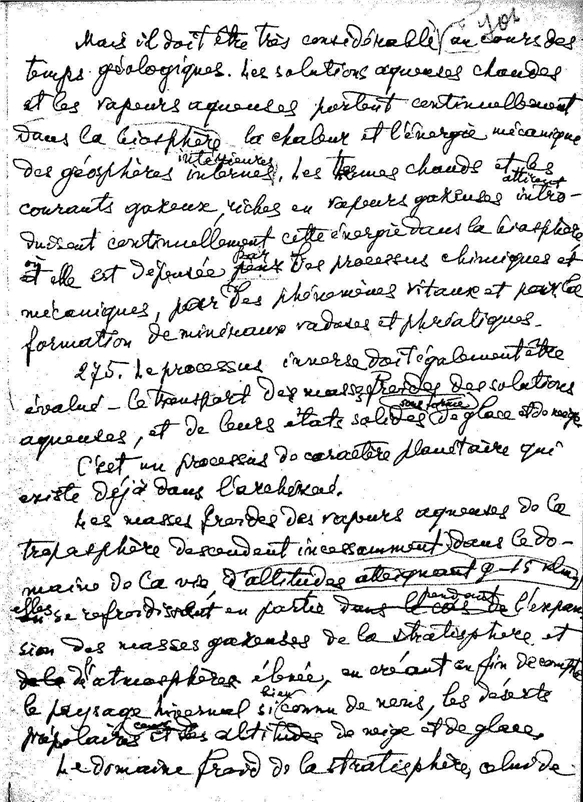 Mais il doit être très considérable au cours des
temps géologiques. Les solutions aqueuses chaudes
et les vapeurs aqueuses portent continuellement
dans la biosphère la chaleur et l'énergie mécanique
intérieures
des géosphères internes. Les thermes chauds et les
attirent
courants gazeux, riches en vapeurs gazeuses intro-
duisent continuellement cette énergie dans la biosphère
par
où elle est dépensée pour des processus chimiques et
mécaniques, par des phénomènes vitaux et par la
formation de minéraux vadoses et phréatiques.
275. Le processus inverse doit également être
évalué - le transport des masses froides des solutions
sous forme
aqueuses, et de leurs états solides de glace et de neige.
C'est un processus de caractère planétaire qui
existe déjà dans l'archéozoï.
Les masses froides des vapeurs aqueuses de la
troposphère descendent incessamment dans le do-
maine de la vie d'altitudes atteignant 9-15 klm,
elles pendant
se refroidissent en partie dans le cours de l'expan-
sion des masses gazeuses de la stratisphère et
de la d'atmosphères élevée, en créant en fin de compte
bien
le paysage hivernal si connu de nevis, les déserts
prépolaires et les altitudes de neige et de glace.
Le domaine froid de la stratisphère, celui de